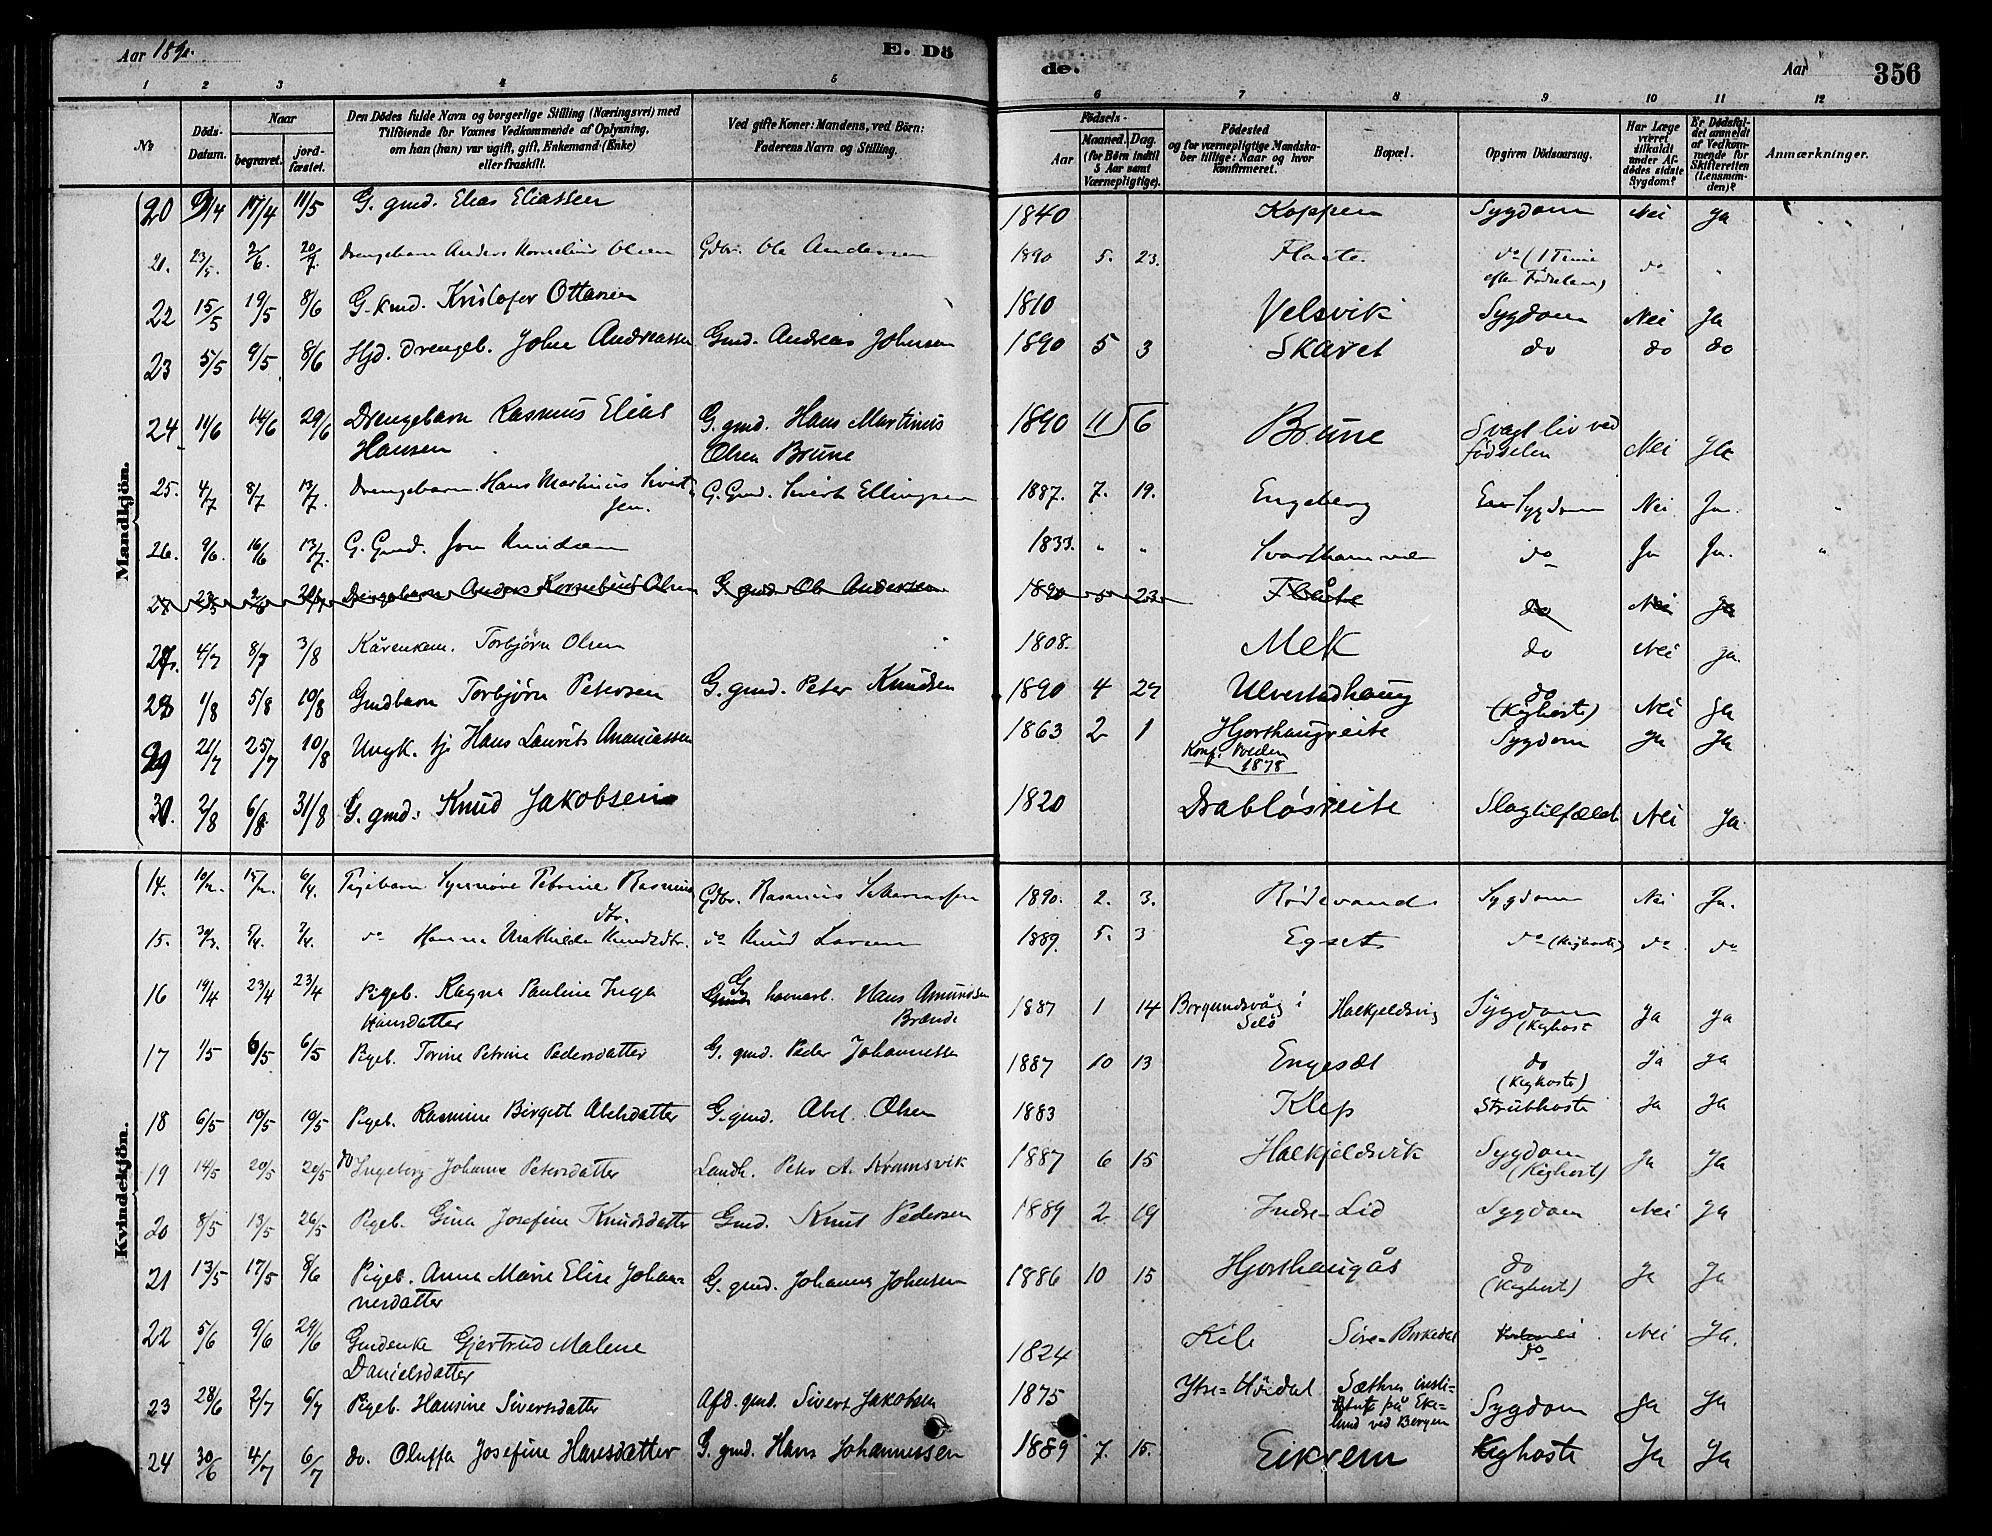 Aar 1890. E. Dö de. Aar 356
1 2 3 4 5 6 7 8 9 10 11 12
No Döds-Datum. Naar begravet. jordfæstet. Den Dödes fulde Navn og borgerlige Stilling (Næringsvei) med Tilföiende for Voxnes Vedkommende af Oplysning, om han (hun) var ugift, gift, Enkemand (Enke) eller fraskilt. Ved gifte Koner: Mandens, ved Börn: Faderens Navn og Stilling. Födsels- Aar Maaned. Dag. (for Börn indtil 5 Aar samt Værnepligtige). Födested og for værnepligtige Mandskaber tillige: Naar og hvor konfirmeret. Bopæl. Opgiven Dödsaarsag. Har Læge været tilkaldt under Afdödes sidste Sygdom? Er Dödsfaldet anmeldt af Vedkommende for Skifteretten (Lensmanden)? Anmærkninger.
Mandkjön.
20 17/4 11/5 G. gmd. Elias Eliassen 1840 Koppen Sygdom Nei Ja
21. 23/5 2/6. 20/7. Drengebarn Anders Kornelius Olsen Gdbr. Ole Andersen 1890 5. 23. Flaate do (1 Time
efter Fødselen) do "
22 15/5 19/5 8/6 G. kmd. Kristofer Ottasen 1810 Velsvik Sygdom Nei Ja
23 5/5 9/5 8/6 Hjd. Drengeb. Johan Andreassen Gmd. Andreas Johnsen 1890 5 3 Skaret do do do
24 11/6 14/6 29/6 Drengebarn Rasmus Elias G. gmd. Hans Martinus 1890 11 6 Brune Svagt liv ved
Hansen Olsen Brune fødselen Nei Ja
25. 4/7 8/7 13/7. Drengebarn Hans Martinus Sivert- G. Gmd. Sivert Ellingsen 1887. 7. 19. Engeberg Sygdom Nei Ja.
sen.
26. 9/6. 16/6 13/7. G. Gmd. Jon Knudsen 1833. " " Svarthammer do Ja Ja. "
27 23/5 2/6 20/7 Drengebarn Anders Kornelius Olsen G gmd Ole Andersen 1890 5 23 Flåte do Nei Ja
27. 4/7 8/7 3/8 Kårenkem. Torbjørn Olsen 1808. Mek do Nei ja.
28 1/8 5/8 10/8 Gmdbarn Torbjørn Petersen G. gmd. Peter Knudsen 1890 4 24 Ulvestadhaug do
(Kighoste) Nei Ja
29 21/7 25/7 10/8 Ungk. tj Hans Laurits Ananiassen 1863 2 1 Hjorthaugreite Sygdom Ja Ja
Konf. Volden
1878
30. 2/8 6/8 31/8 G. gmd. Knud Jakobsen 1820 Drabløsreite Slagtilfælde Nei Ja.
Kvindekjön.
14. 10/2. 15/2. 6/4. Pigebarn Synnøve Petrine Rasmus- Gdbr. Rasmus 1890. 2. 3. Rødevand Sygdom Nei Ja.
dtr.
15. 30/3. 5/4. 7/4. do Hanna Mathilde Knudsdtr. do Knud Larsen 1889. 5. 3 Egset do (Kighoste) do do
16 19/4 23/4 23/4 Pigeb. Ragna Pauline Inga G havnarb. Hans Amundsen 1887 1 14 Borgundsvåg i Halkjeldsvig Sygdom Ja ja
Hansdatter Brænde Selø (Kighost
17 1/5 6/5 6/5 Pigeb. Torine Petrine Pedersdatter G. gmd. Peder Johannessen 1887 10 13 Engesæt do
(Kighoste) Ja Ja
18 6/5 10/5 19/5 Pigeb. Rasmine Birgett Abelsdatter G. gmd. Abel Olsen 1883 Klep Strubhoste Ja Ja
19 14/5 20/5 20/5 do Ingeborg Johanne Petersdatter Landh. Peter A. Kramsvik 1887 6 15 Halkjeldsvik Sygdom
(Kighost) Ja Ja
20 8/5 13/5 26/5 Pigeb. Gina Josefine Knudsdatter Gmd. Knut Pedersen 1889 2 19 Indre-Lid Sygdom Nei Ja
21 13/5 17/5 8/6 Pigeb. Anna Marie Elise Johan- G. gmd. Johannes Johnsen 1886 10 15 Hjorthaugås do
nesdatter (Kighost) Ja Ja
22 5/6 9/6 29/6 Gmdenke Gjertrud Malene 1824 Kile Søre-Birkedal do Nei Ja.
Danielsdatter
23 28/6 2/7 6/7 Pigeb. Hansine Siversdatter Afd. gmd. Sivert Jakobsen 1875 Ytre-Høidal Sæthres insti-
tut på Eke-
lund ved Bergen Sygdom Ja Ja
24 30/6 4/7 6/7 do. Oluffa Josefine Hansdatter G. gmd. Hans Johannessen 1889 7. 15. Eikrem Kighoste Ja Ja